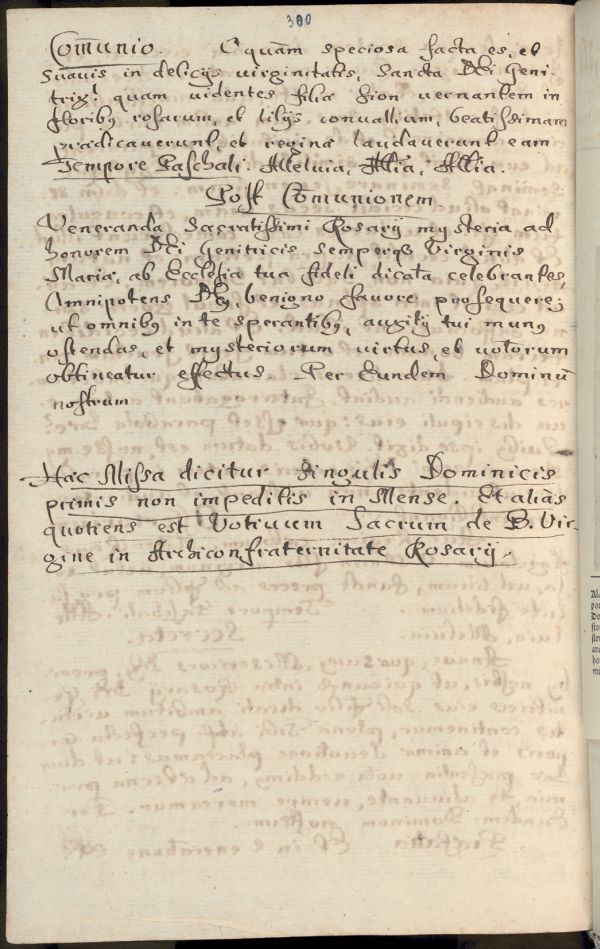 300
Com̄unio. O quam speciosa facta es, et
suavis in delicijs virginitatis, Sancta Dei Geni-
trix! quam videntes filiæ Sion vernantem in
floribꝫ rosarum, et lilijs convallium, beatissimam
prædicaverunt, et reginæ laudaverunt eam
Tempore Paschali. Alleluia, Allia, Allia.
Post Com̄unionem.
Veneranda Sacratissimi Rosarij mysteria ad
honorem Dei Genitricis semperqꝫ Virginis
Mariæ, ab Ecclesia tua fideli dicata celebrantes,
Omnipotens Dꝫ, benigno favore prosequere;
ut omnibꝫ in te sperantibꝫ, auxilij tui munꝫ
ostendas, et mysteriorum virtus, et votorum
obtineatur effectus. Per Eundem Dominū
nostrum
Hæc Missa dicitur singulis Dominicis
primis non impeditis in Mense. Et aliàs
quotiens est Votivum Sacrum de B. Vir-
gine in Archiconfraternitate Rosarij.